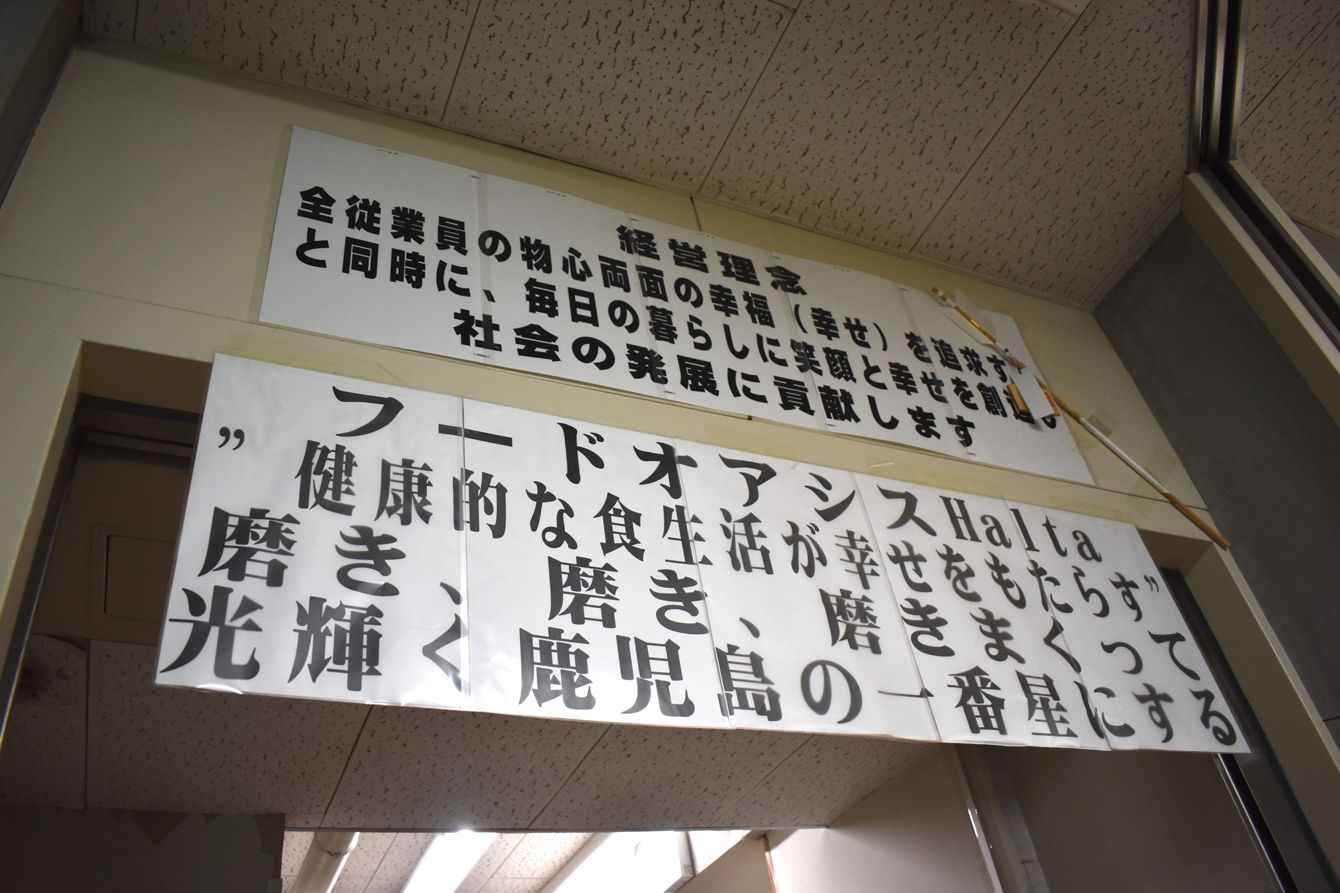 経営理念
全従業員の物心両面の幸福（幸せ）を追求す
と同時に、毎日の暮らしに笑顔と幸せを創造し
社会の発展に貢献します
フードオアシスHalta
”健康的な食生活が幸せをもたらす”
磨き、磨き、磨きまくって
光輝く鹿児島の一番星にする